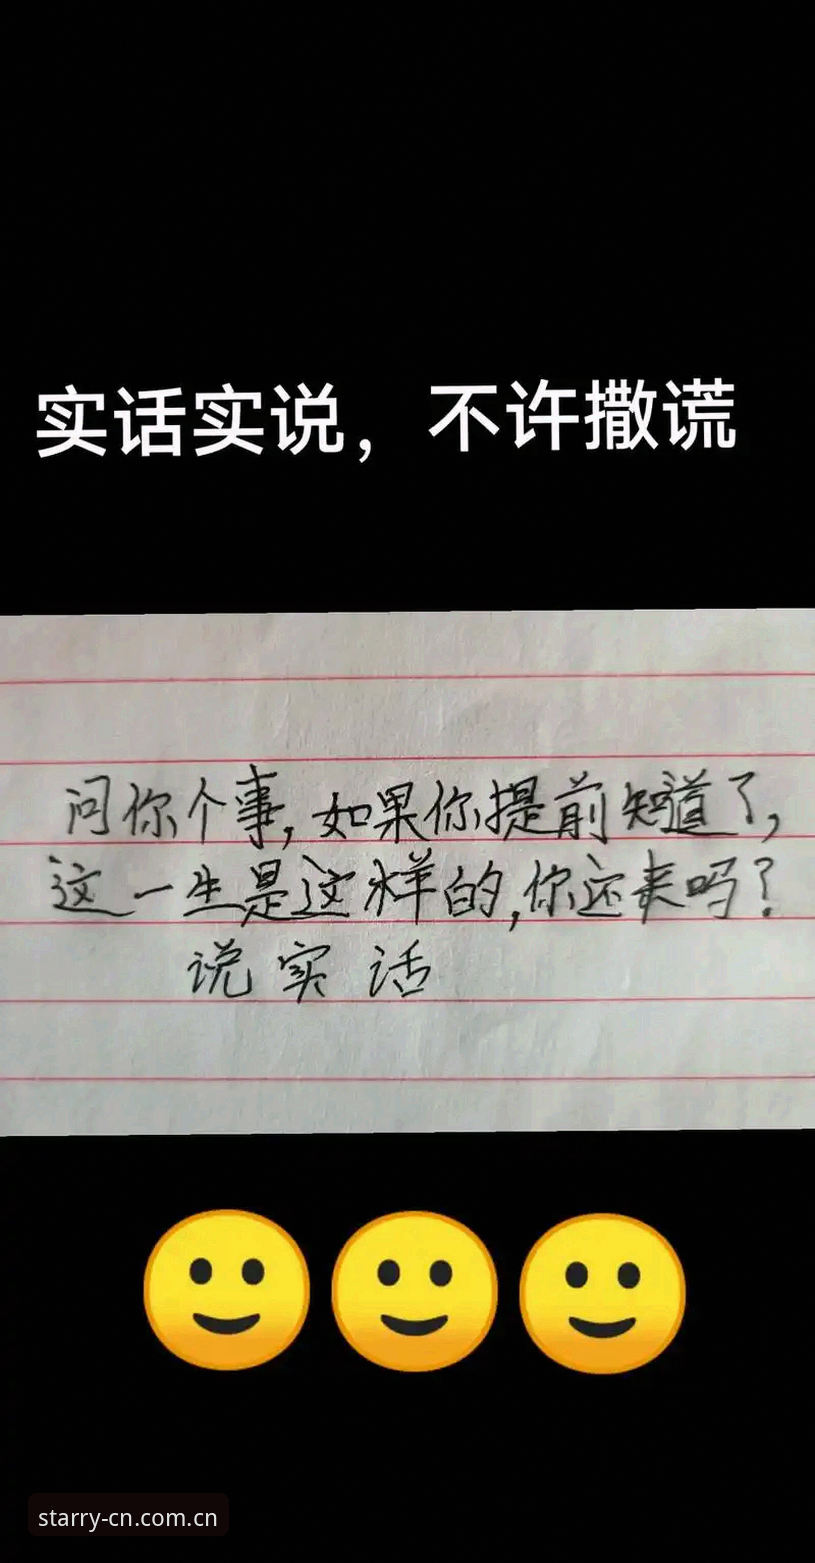 实话实说，不许撒谎
问你个事,如果你提前知道了,
这一生是这样的,你还来吗?
说实话
starry-cn.com.cn